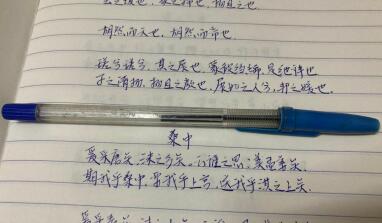 玉之瑱也,象之揥也,扬且之皙也
胡然而天也,胡然而帝也
瑳兮瑳兮,其之展也,蒙彼绉絺,是绁袢也
子之清扬,扬且之颜也,展如之人兮,邦之媛也.
桑中
爰采唐矣,沬之乡矣,云谁之思,美孟姜矣.
期我乎桑中,要我乎上宫,送我乎淇之上矣.